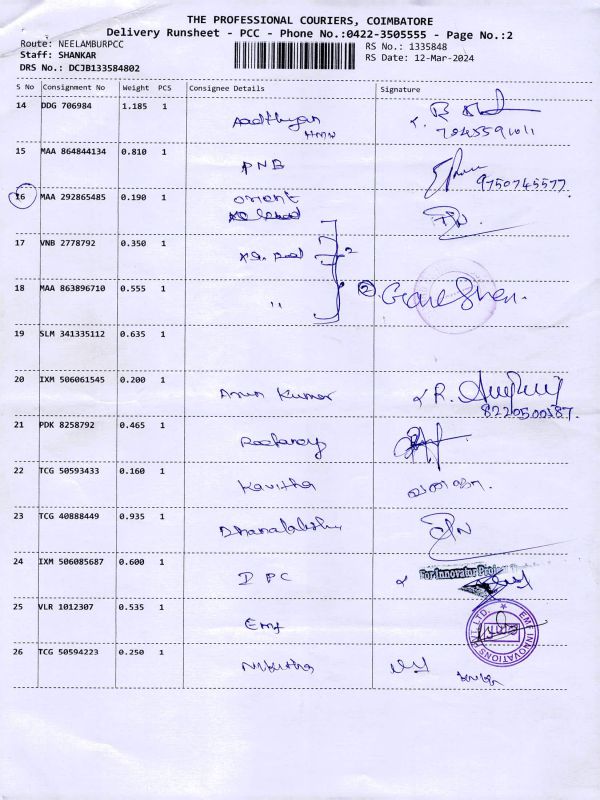 THE PROFESSIONAL COURIERS, COIMBATORE
Delivery Runsheet - PCC - Phone No.:0422-3505555 - Page No.:2
Route: NEELAMBURPCC
RS No.: 1335848
Staff: SHANKAR
RS Date: 12-Mar-2024
DRS No.: DCJB133584802
S No Consignment No Weight PCS Consignee Details Signature
14 DDG 706984 1.185 1 Aadthyan
HMW
15 MAA 864844134 0.810 1 PNB
9750745577
16 MAA 292865485 0.190 1 orient
17 VNB 2778792 0.350 1
2
18 MAA 863896710 0.555 1 " 2 Ganeshan.
19 SLM 341335112 0.635 1
20 IXM 506061545 0.200 1 Arun Kumar R.
21 PDK 8258792 0.465 1
22 TCG 50593433 0.160 1 Kavitha
23 TCG 40888449 0.935 1 Dhanalakshmi
24 IXM 506085687 0.600 1 DPC For Innovator Project
25 VLR 1012307 0.535 1 Emf
EMF INNOVATIONS PVT LTD.
26 TCG 50594223 0.250 1 Nikitha